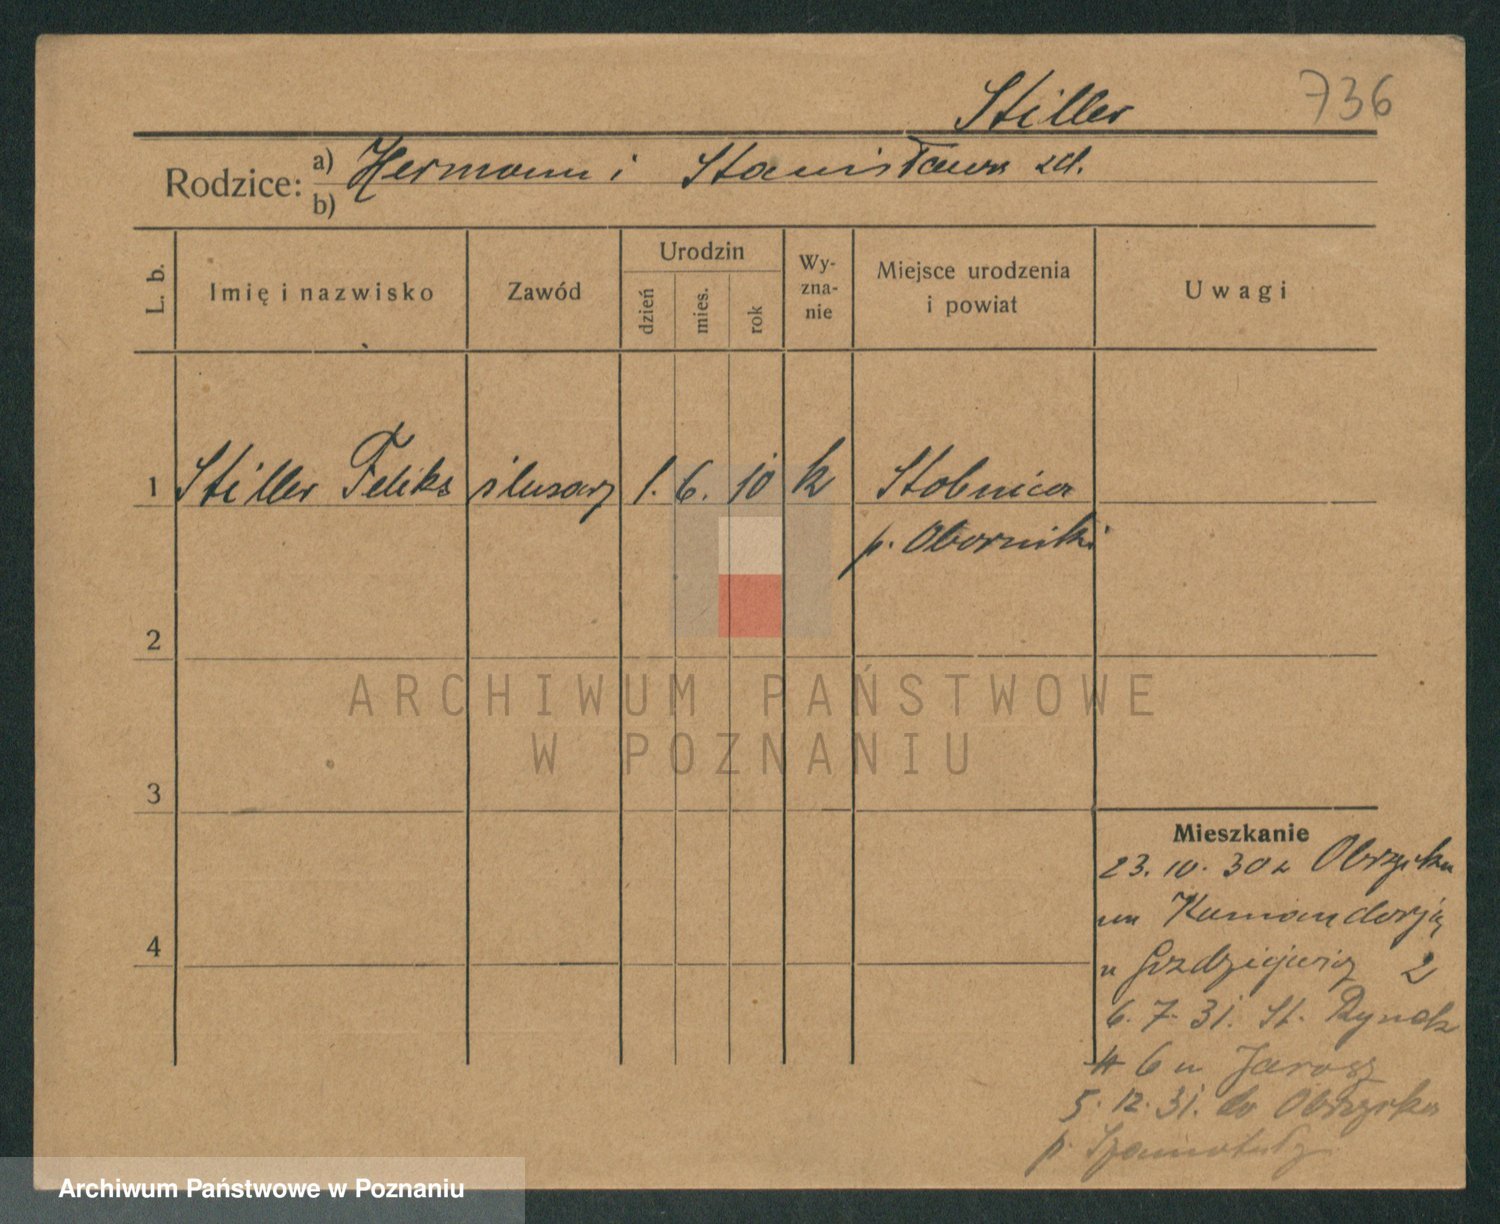 Stiller 736
Rodzice: a) Hermann i Stanisława zd.
b)
L. b.
Imię i nazwisko
Zawód
Urodzin
dzień
mies.
rok
Wy-
zna-
nie
Miejsce urodzenia
i powiat
Uwagi
1 Stiller Feliks ślusarz 1. 6. 10 k Stobnica
p. Oborniki
2
3
4
Mieszkanie
23. 10. 30 z Obrzycka
na Kumandorją
u 2
6. 7. 31. St. Rynek
6 u Jarosz
5. 12. 31. do Obrzycka
p. Szamotuły
ARCHIWUM PAŃSTWOWE
W POZNANIU
Archiwum Państwowe w Poznaniu